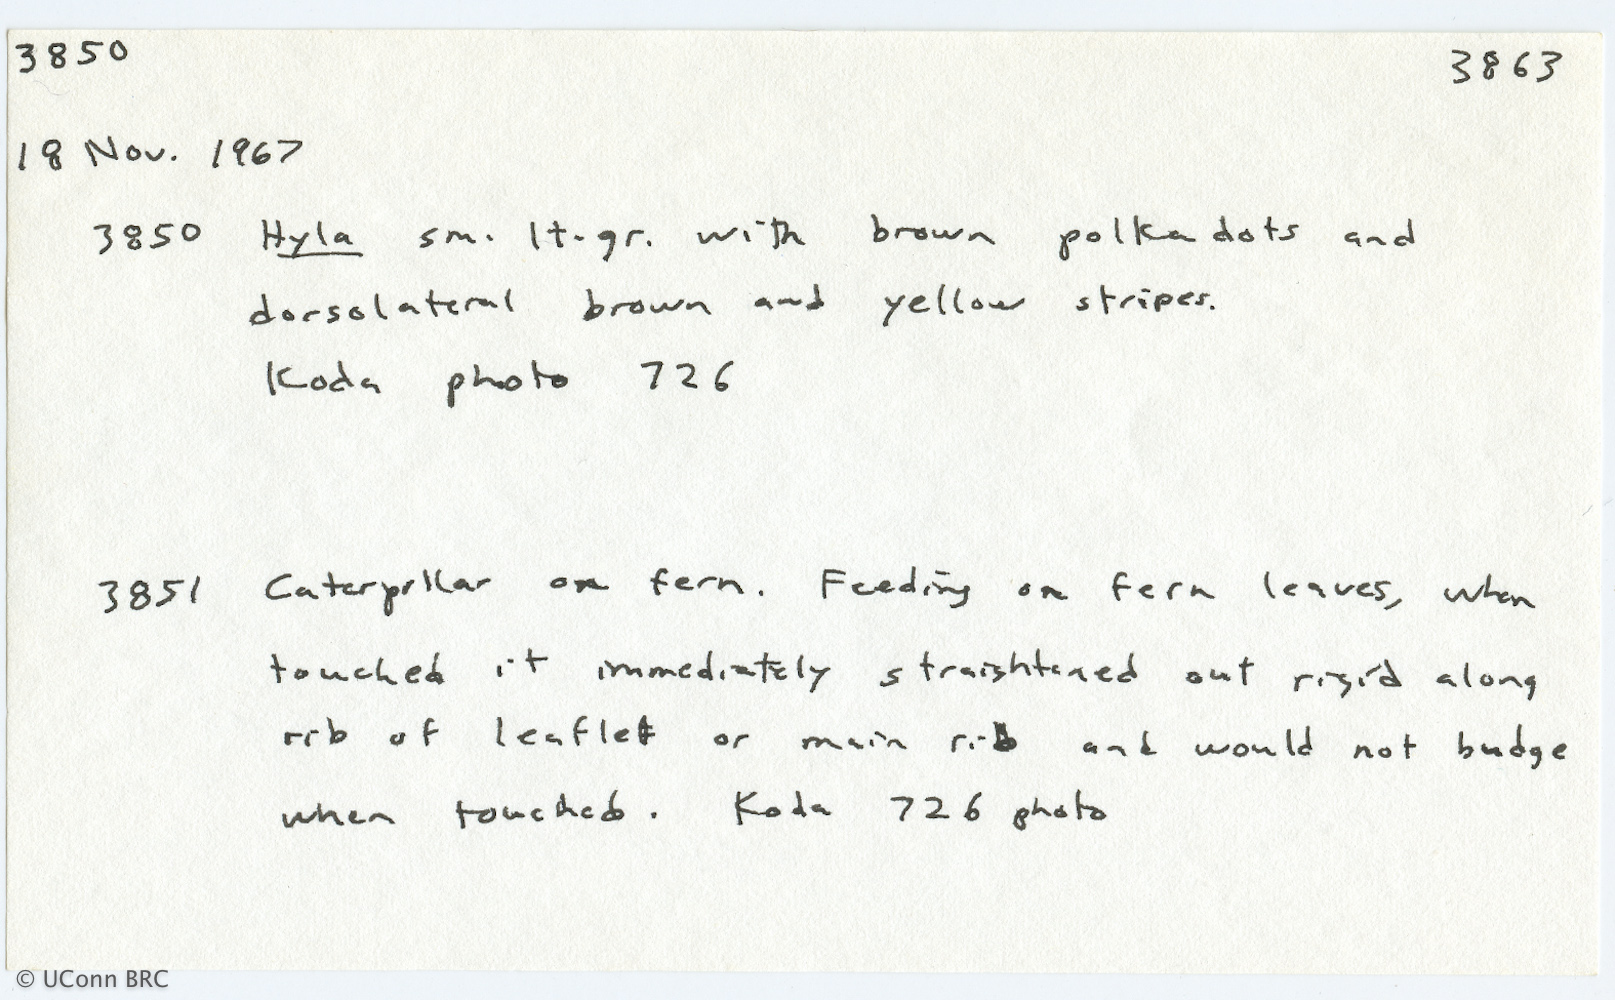 3850 3863
18 Nov. 1967
3850 Hyla sm. lt.gr. with brown polka dots and
dorsolateral brown and yellow stripes.
Koda photo 726
3851 Caterpillar on fern. Feeding on fern leaves, when
touched it immediately straightened out rigid along
rib of leaflet or main rib and would not budge
when touched. Koda 726 photo
© UConn BRC